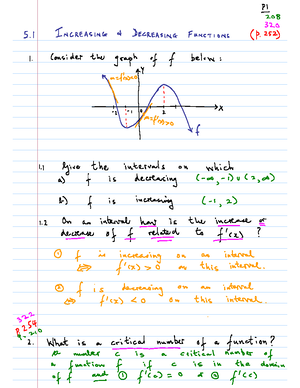 P1
208
320
5.1 INCREASING & DECREASING FUNCTIONS (p. 252)
1. Consider the graph of f below:
y
x
-2 -1 0 2
f
1.1 Give the intervals on which
a) f is decreasing (-∞, -1) ∪ (2, ∞)
b) f is increasing (-1, 2)
1.2 On an interval how is the increase or
decrease of f related to f'(x) ?
① f is increasing on an interval
⇔ f'(x) > 0 on this interval.
② f is decreasing on an interval
⇔ f'(x) < 0 on this interval.
322
p.254
2. What is a critical number of a function?
A number c is a critical number of
a function f if c is in the domain
of f and ① f'(c) = 0 or ② f'(c)